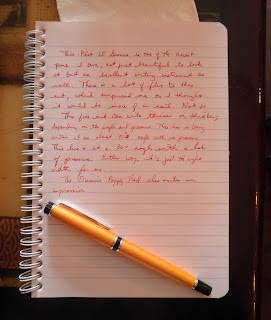 This Pilot is one of the nicest
pens I own, not just beautiful to look
at but an excellent writing instrument as
well. There is a lot of flex to this
nib, which surprised me as I thought
it would be more of a nail. Not so.
This fine nib can write thinner or thicker,
depending on the angle and pressure. This line is being
written at an about 90° angle with no pressure.
This line is at a 30° angle with a lot
of pressure. Either way, it's just the right
width for me.
The Poppy Red also makes an
impression.